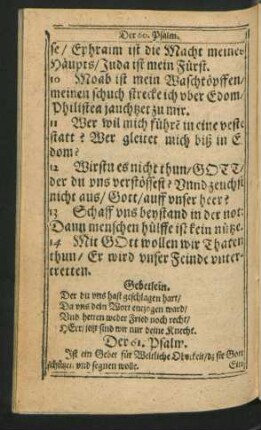 Der 60. Psalm.
se/ Ephraim ist die Macht meines
Häupts/ Juda ist mein Fürst.
10 Moab ist mein Waschtöpffen/
meinen schuch strecke ich vber Edom/
Philistea jauchtzet zu mir.
11 Wer wil mich führe͂ in eine veste
statt? Wer gleitet mich biß in E
dom?
12 Wirstu es nicht thun/ GOTT/
der du vns verstössest? Vnnd zeuchst
nicht aus/ Gott/ auff vnser heer?
13 Schaff vns beystand in der not:
Dañ menschen hülffe ist kein nütze.
14 Mit GOtt wollen wir Thaten
thun/ Er wird vnser Feinde vnter-
tretten.
Gebetlein.
Der du vns hast geschlagen hart/
Da vns dein Wort entzogen ward/
Vnd hetten weder Fried noch recht/
HErr/ jetzt sind wir nur deine Knecht.
Der 61. Psalm.
Ist ein Gebet für Weltliche Obrkeit/ dz sie Gott
schütze/ vnd segnen wolle.
Ein